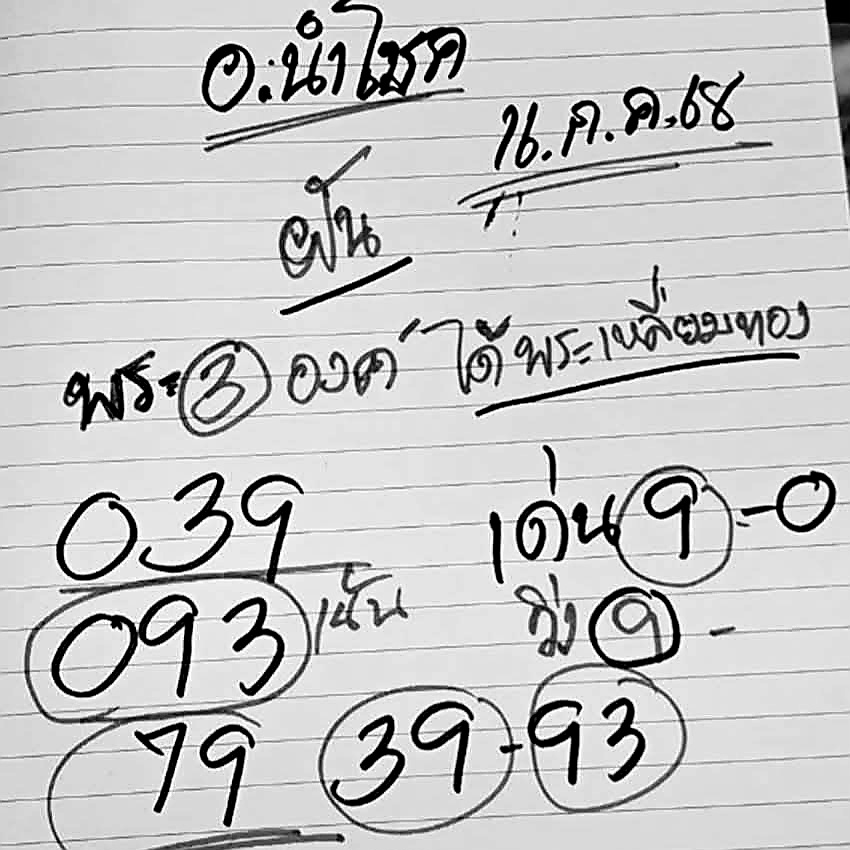 อ.นำโชค
ก.ค.68
ฝัน
พระ 3 องค์ ได้พระเหลี่ยมทอง
039 เด่น 9-0
093 เน้น วิ่ง 9 -
79 39-93